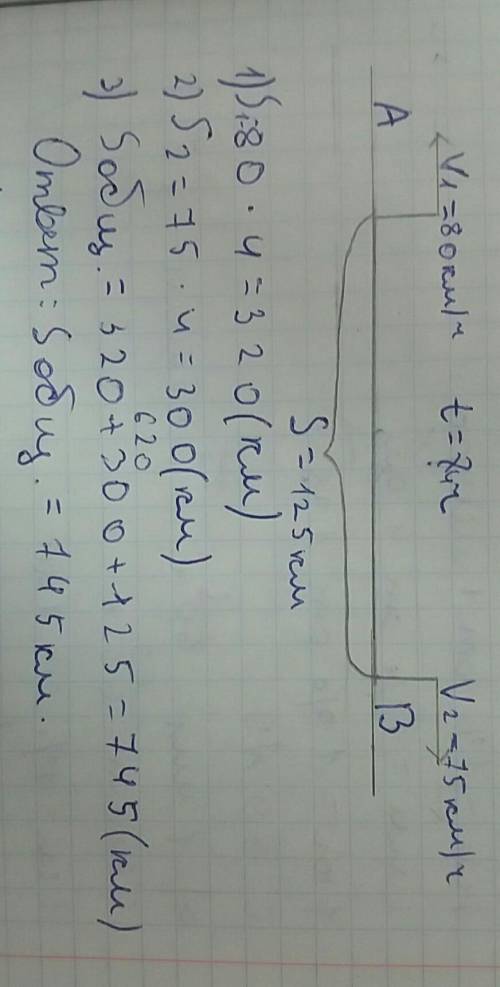 V₁=80км/ч t=4ч V₂=75км/ч
A B
S=125км
1) S₁=80·4=320(км)
2) S₂=75·4=300(км)
620
3) Sобщ.=320+300+125=745(км)
Ответ: Sобщ.=745км.